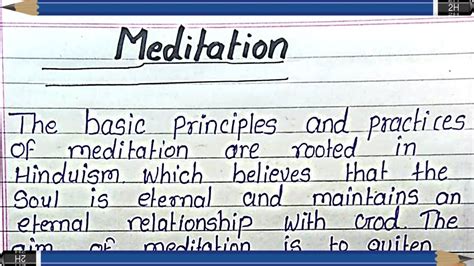 2H
Meditation
The basic principles and practices
of meditation are rooted in
Hinduism which believes that the
Soul is eternal and maintains an
eternal relationship with God. The
aim of meditation is to quiten
2H
2H